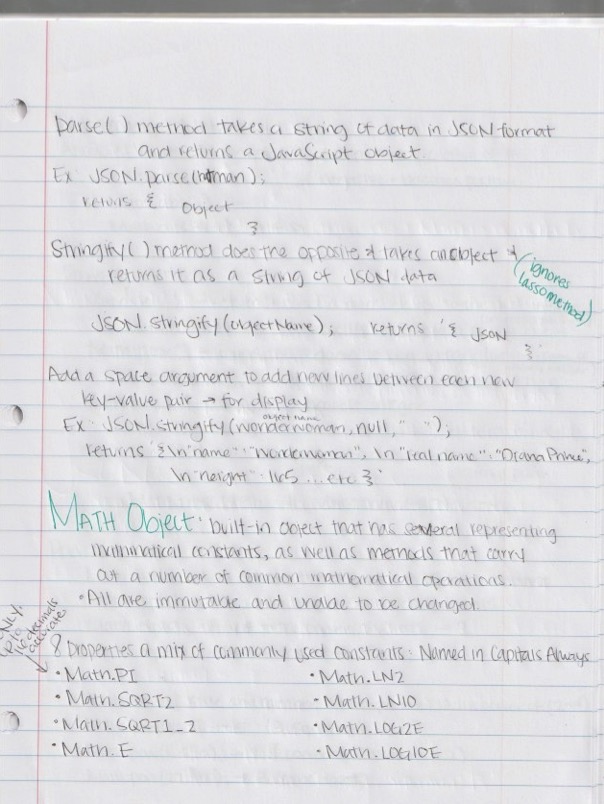 parse() method takes a string of data in JSON format
and returns a JavaScript object
Ex JSON.parse(batman);
returns { object
}
Stringify() method does the opposite & takes an object &
returns it as a string of JSON data
(ignores
lasso method)
JSON.stringify(objectName); returns '{ JSON
}'
Add a space argument to add new lines between each new
key-value pair → for display
object name
Ex. JSON.stringify(wonderwoman, null, " ");
returns '{\n "name": "Wonderwoman", \n "real name": "Diana Prince",
\n "height": 165 ... etc }'
MATH Object: built-in object that has several representing
mathmatical constants, as well as methods that carry
out a number of common mathematical operations.
• All are immutable and unable to be changed.
ONLY
16 decimals
accurate
8 Properties a mix of commonly used constants: Named in Capitals Always
• Math.PI • Math.LN2
• Math.SQRT2 - Math.LN10
• Math.SQRT1_2 • Math.LOG2E
• Math.E - Math.LOG10E